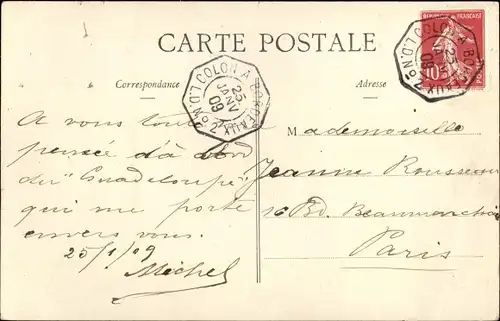 CARTE POSTALE
Correspondance
Adresse
COLON A BORDEAUX
L.D. No 2
25
JANV
09
COLON A BORDEAUX
L.D. No 2
25
09
FRANÇAISE
10
A vous toute
pensée d'à bord
du "Guadeloupe"
qui me porte
envers vous.
25/1/09
Michel
Mademoiselle
Jeanne Rousseau
16 Bd. Beaumarchais
Paris